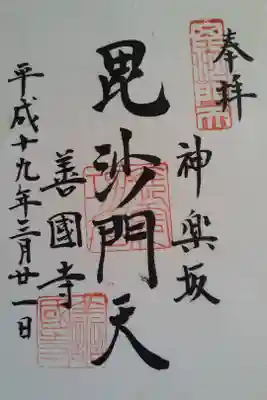 奉拝
神楽坂
毘沙門天
善國寺
平成十九年三月廿一日